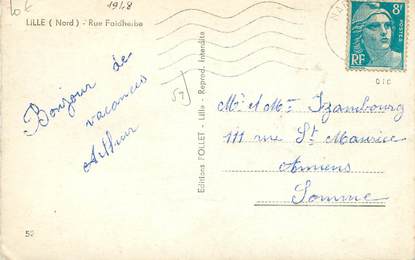 10€
1948
LILLE (Nord) - Rue Faidherbe
Bonjour de
vacances
Arthur
59
Editions FOLLET - Lille - Reprod. Interdite
8F
POSTES
RF
Mr & Mme Izambourg
111 rue St Maurice
Amiens
Somme
52